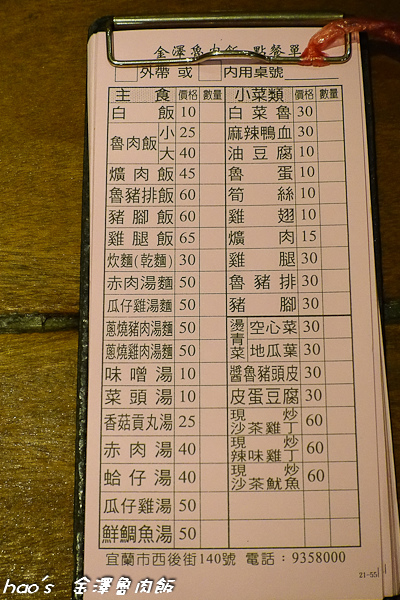 金澤魯肉飯 點餐單
外帶 或 內用桌號
主食 價格 數量 小菜類 價格 數量
白飯 10 白菜魯 30
魯肉飯 小 25 麻辣鴨血 30
大 40 油豆腐 10
爌肉飯 45 魯蛋 10
魯豬排飯 60 筍絲 10
豬腳飯 60 雞翅 10
雞腿飯 65 爌肉 15
炊麵(乾麵) 30 雞腿 30
赤肉湯麵 50 魯豬排 30
瓜仔雞湯麵 50 豬腳 30
蔥燒豬肉湯麵 50 燙青菜 空心菜 30
蔥燒雞肉湯麵 50 地瓜葉 30
味噌湯 10 醬魯豬頭皮 30
菜頭湯 10 皮蛋豆腐 30
香菇貢丸湯 25 現炒沙茶雞丁 60
赤肉湯 40 現炒辣味雞丁 60
蛤仔湯 40 現炒沙茶魷魚 60
瓜仔雞湯 50
鮮鯛魚湯 50
宜蘭市西後街140號 電話：9358000
21-55
hao's 金澤魯肉飯